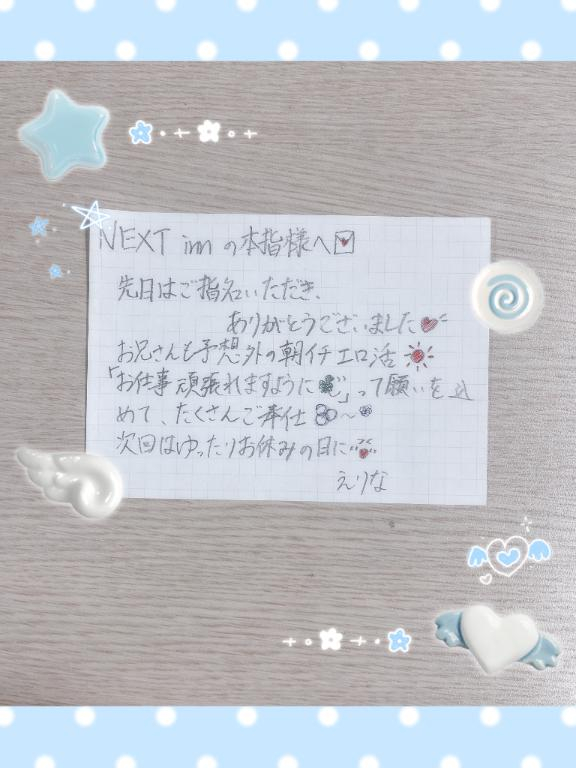 NEXT innの本指様へ
先日はご指名いただき、
ありがとうございました
お兄さんも予想外の朝イチエロ活
「お仕事頑張れますように」って願いを込
めて、たくさんご奉仕〜
次回はゆったりお休みの日に
えりな